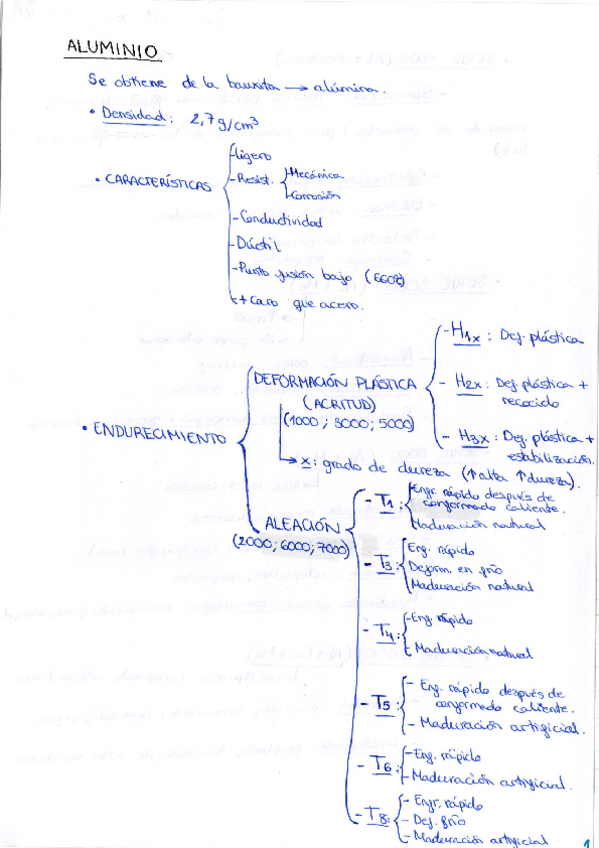 ALUMINIO
Se obtiene de la bauxita → alúmina.
• Densidad: 2,7 g/cm³
• CARACTERÍSTICAS
- Ligero
- Resist.
- Mecánica
- Corrosión
- Conductividad
- Dúctil
- Punto fusión bajo (660º)
- + Caro que acero.
• ENDURECIMIENTO
DEFORMACIÓN PLÁSTICA
(ACRITUD)
(1000; 3000; 5000)
- H1x: Def. plástica
- H2x: Def. plástica +
recocido
- H3x: Def. plástica +
estabilización.
→ x: grado de dureza (↑alta ↑dureza).
ALEACIÓN
(2000; 6000; 7000)
- T1:
- Enfr. rápido después de
conformado caliente.
- Maduración natural
- T3:
Enf. rápido
Deform. en frío
Maduración natural
- T4:
- Enf. rápido
Maduración natural
- T5:
- Enf. rápido después de
conformado caliente.
- Maduración artificial.
- T6:
- Enf. rápido
- Maduración artificial.
- T8:
- Enfr. rápido
- Def. frío
- Maduración artificial
1